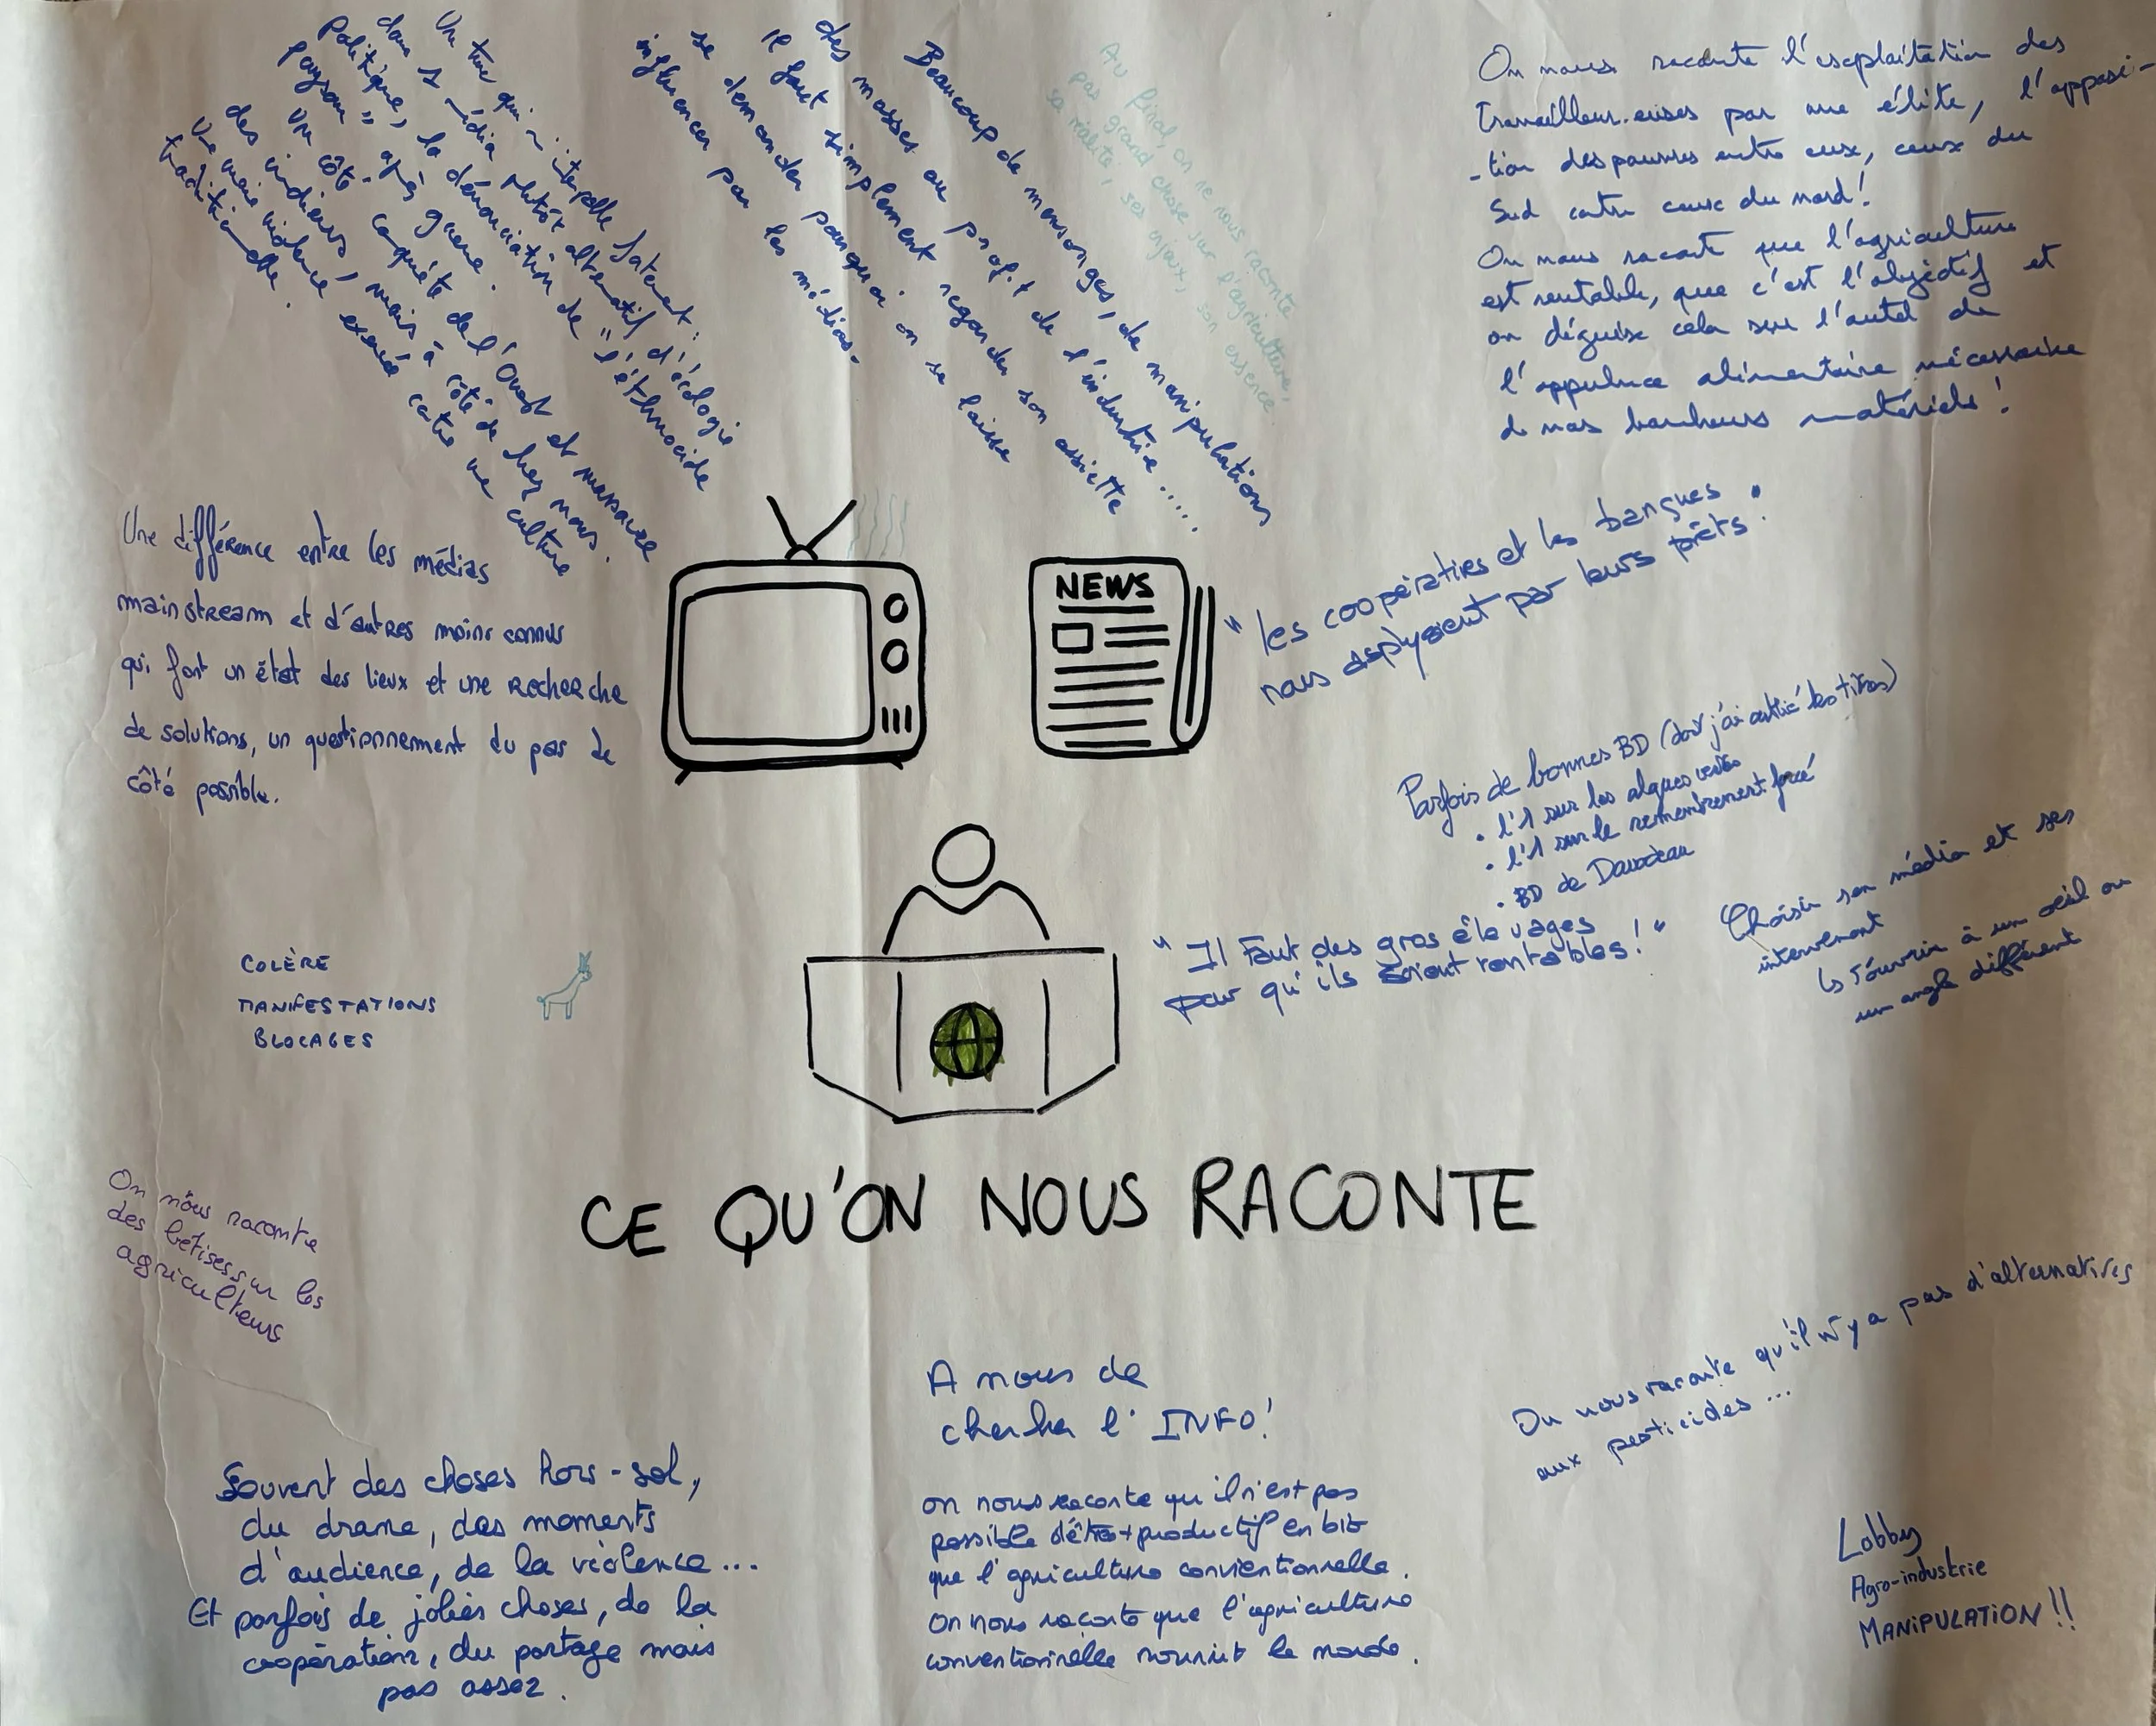 Un truc qui m'interpelle notamment :
dans 1 média plutôt alternatif d'écologie
politique, la dénonciation de "l'éthnocide
paysan" après guerre.
Un côté conquête de l'Ouest et massacre
des indiens, mais à côté de chez nous.
Une vraie violence exercée contre une culture
traditionnelle.
Beaucoup de mensonges, de manipulations
des masses au profit de l'industrie .....
Il faut simplement regarder son assiette
se demander pourquoi on se laisse
influencer par les médias.
Au final, on ne nous raconte
pas grand chose sur l'agriculture,
sa réalité, ses enjeux, son essence.
On nous raconte l'exploitation des
travailleur.euses par une élite, l'opposi-
-tion des pauvres entre eux, ceux du
Sud contre ceux du nord !
On nous raconte que l'agriculture
est rentable, que c'est l'objectif et
on déguise cela sur l'autel de
l'appulence alimentaire nécessaire
à nos bonheurs matériels !
Une différence entre les médias
mainstream et d'autres moins connus
qui font un état des lieux et une recherche
de solutions, un questionnement du pas de
côté possible.
NEWS
"les coopératives et les banques
nous asphyxient par leurs prêts".
Parfois de bonnes BD (dont j'ai oublié les titres)
• l'1 sur les algues vertes
• l'1 sur le remembrement forcé
• BD de Davodeau
"Il faut des gros élevages
pour qu'ils soient rentables !"
Choisir son média et ses
intervenant
Ls s'ouvrir à un oeil ou
un angle différent
COLÈRE
MANIFESTATIONS
BLOCAGES
CE QU'ON NOUS RACONTE
On nous raconte
des bêtises sur les
agriculteurs
A nous de
chercher l'INFO !
On nous raconte qu'il n'y a pas d'alternatives
aux pesticides ...
Souvent des choses hors-sol,
du drame, des moments
d'audience, de la violence ...
Et parfois de jolies choses, de la
coopération, du partage mais
pas assez.
on nous raconte qu'il n'est pas
possible d'être + productif en bio
que l'agriculture conventionnelle.
On nous raconte que l'agriculture
conventionnelle nourrit le monde.
Lobby
Agro-industrie
MANIPULATION !!